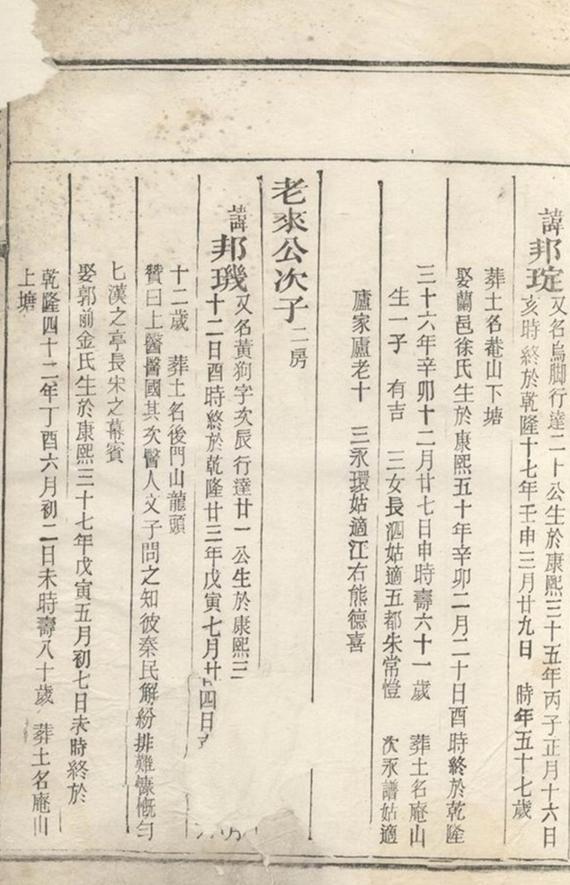 諱邦琔又名烏脚行達二十公生於康熙三十五年丙子正月十六日
亥時終於乾隆十七年壬申三月廿九日 時年五十七歲
葬土名菴山下塘
娶蘭邑徐氏生於康熙五十年辛卯二月二十日酉時終於乾隆
三十六年辛卯十二月廿七日申時壽六十一歲 葬土名庵山
生一子 有吉 三女長泗姑適五都朱常愷 次永譜姑適
廬家廬老十 三永環姑適江右熊德喜
老來公次子二房
諱邦璣又名黃狗字次辰行達廿一公生於康熙三
十二日酉時終於乾隆廿三年戊寅七月廿四日
十二歲 葬土名後門山龍頭
贊曰上醫醫國其次醫人文子問之知彼秦民解紛排難慷慨勻
匕漢之亭長宋之幕賓
娶郭前金氏生於康熙三十七年戊寅五月初七日未時終於
乾隆四十二年丁酉六月初二日未時壽八十歲 葬土名庵山
上塘